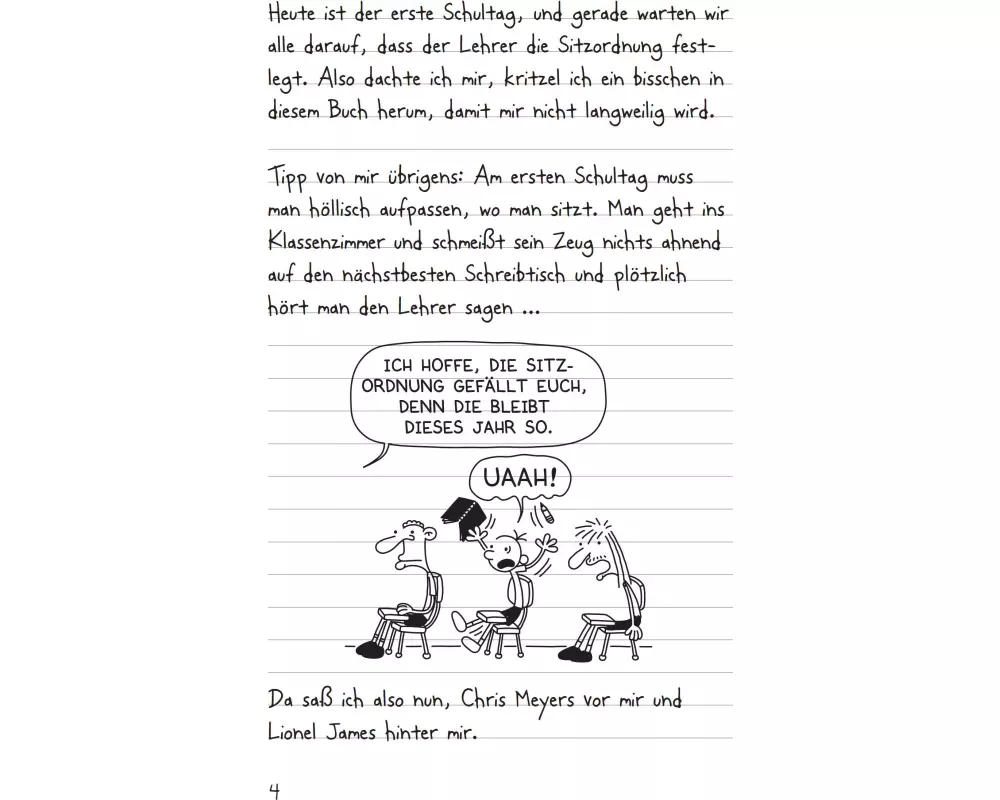 Heute ist der erste Schultag, und gerade warten wir
alle darauf, dass der Lehrer die Sitzordnung fest-
legt. Also dachte ich mir, kritzel ich ein bisschen in
diesem Buch herum, damit mir nicht langweilig wird.
Tipp von mir übrigens: Am ersten Schultag muss
man höllisch aufpassen, wo man sitzt. Man geht ins
Klassenzimmer und schmeißt sein Zeug nichts ahnend
auf den nächstbesten Schreibtisch und plötzlich
hört man den Lehrer sagen ...
ICH HOFFE, DIE SITZ-
ORDNUNG GEFÄLLT EUCH,
DENN DIE BLEIBT
DIESES JAHR SO.
UAAH!
Da saß ich also nun, Chris Meyers vor mir und
Lionel James hinter mir.
4